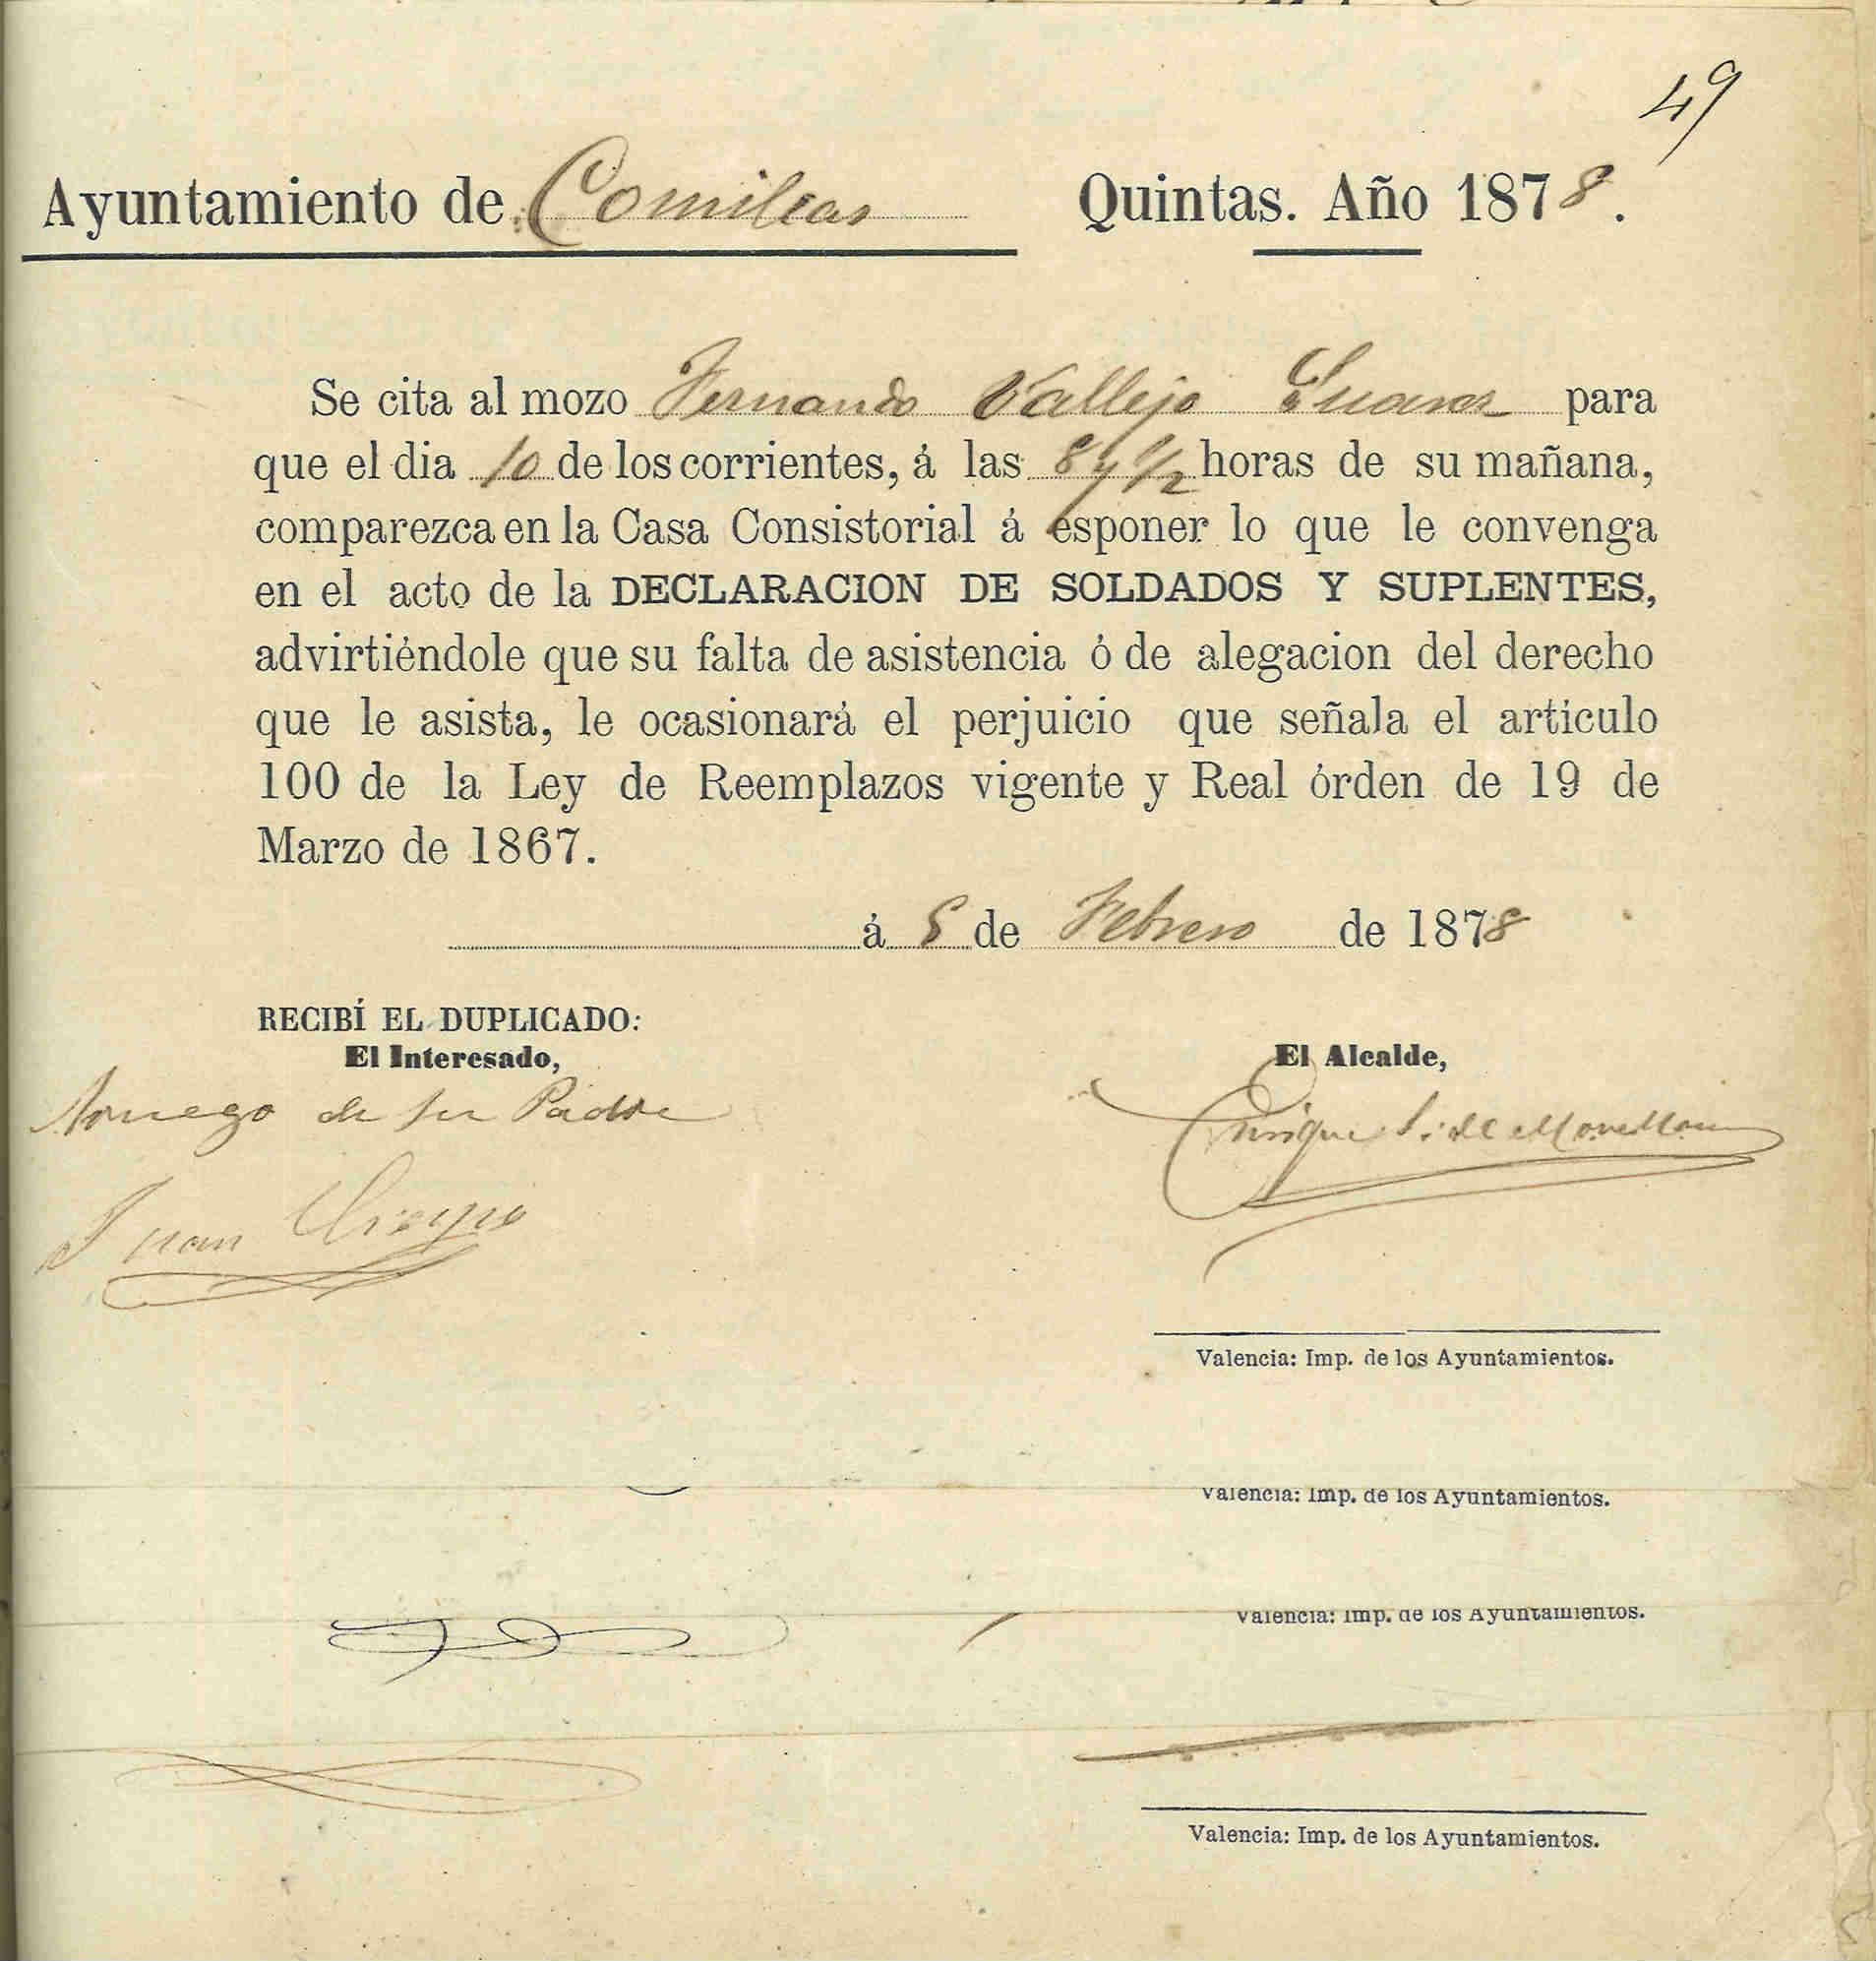 49
Ayuntamiento de Comillas Quintas. Año 1878.
Se cita al mozo Fernando Vallejo Suarez para
que el dia 10 de los corrientes, á las 8 y 1/2 horas de su mañana,
comparezca en la Casa Consistorial á esponer lo que le convenga
en el acto de la DECLARACION DE SOLDADOS Y SUPLENTES,
advirtiéndole que su falta de asistencia ó de alegacion del derecho
que le asista, le ocasionará el perjuicio que señala el artículo
100 de la Ley de Reemplazos vigente y Real órden de 19 de
Marzo de 1867.
á 5 de Febrero de 1878
RECIBÍ EL DUPLICADO:
El Interesado,
El Alcalde,
Aruego de su Padre
Enrique
Juan
Valencia: Imp. de los Ayuntamientos.
Valencia: Imp. de los Ayuntamientos.
Valencia: Imp. de los Ayuntamientos.
Valencia: Imp. de los Ayuntamientos.